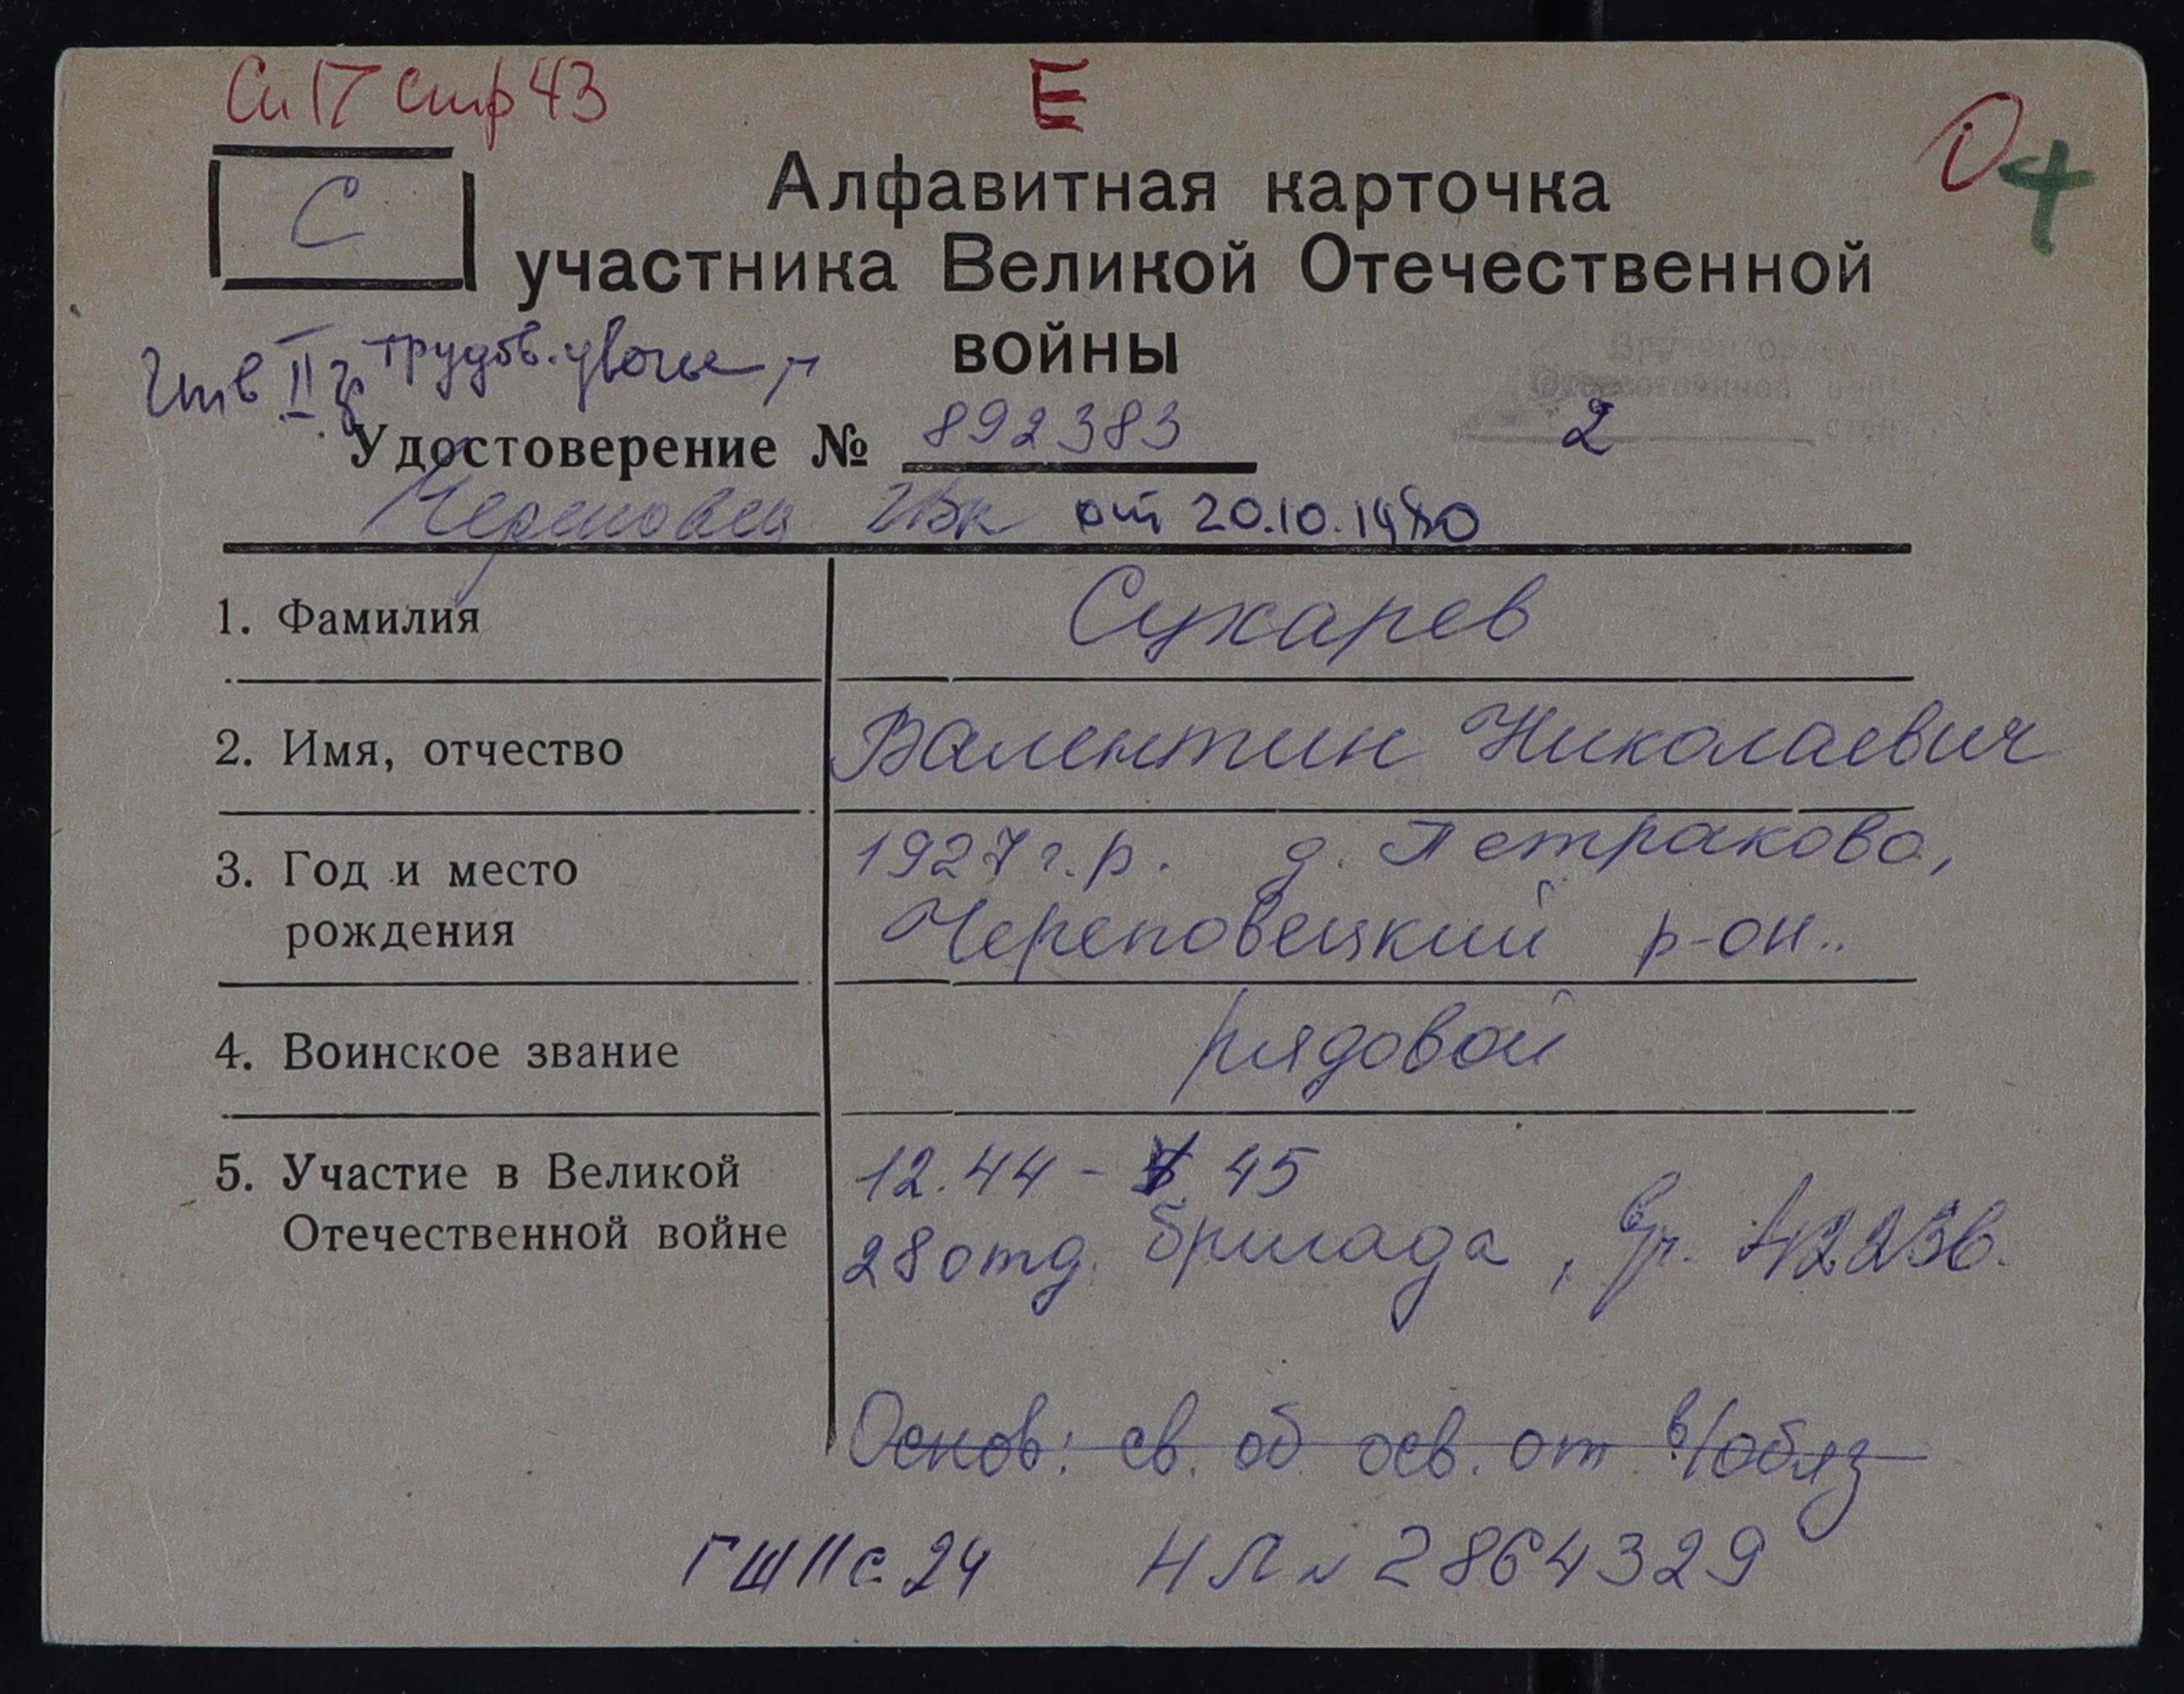 Сп 17 стр 43
Е
С
Алфавитная карточка
участника Великой Отечественной
войны
Инв II гр трудов. увечье
Удостоверение № 892383
2
Череповец ГВК от 20.10.1980
1. Фамилия Сухарев
2. Имя, отчество Валентин Николаевич
3. Год и место 1927 г.р. д. Петраково,
рождения Череповецкий р-он..
4. Воинское звание рядовой
5. Участие в Великой 12.44 - 45
Отечественной войне 28 отд. бригада,
Основ: св. об осв. от в/обяз
ГШ II с. 24 НЛ № 2864329